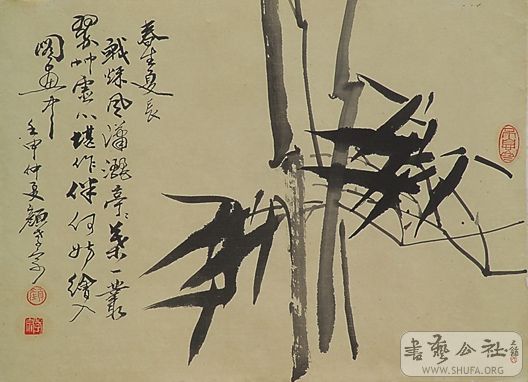 春生夏長
戰秋風瀟灑亭亭一叢
翠竹虛心堪作伴何妨繪入
圖畫中
壬申仲夏顏
書藝公社
WWW.SHUFA.ORG